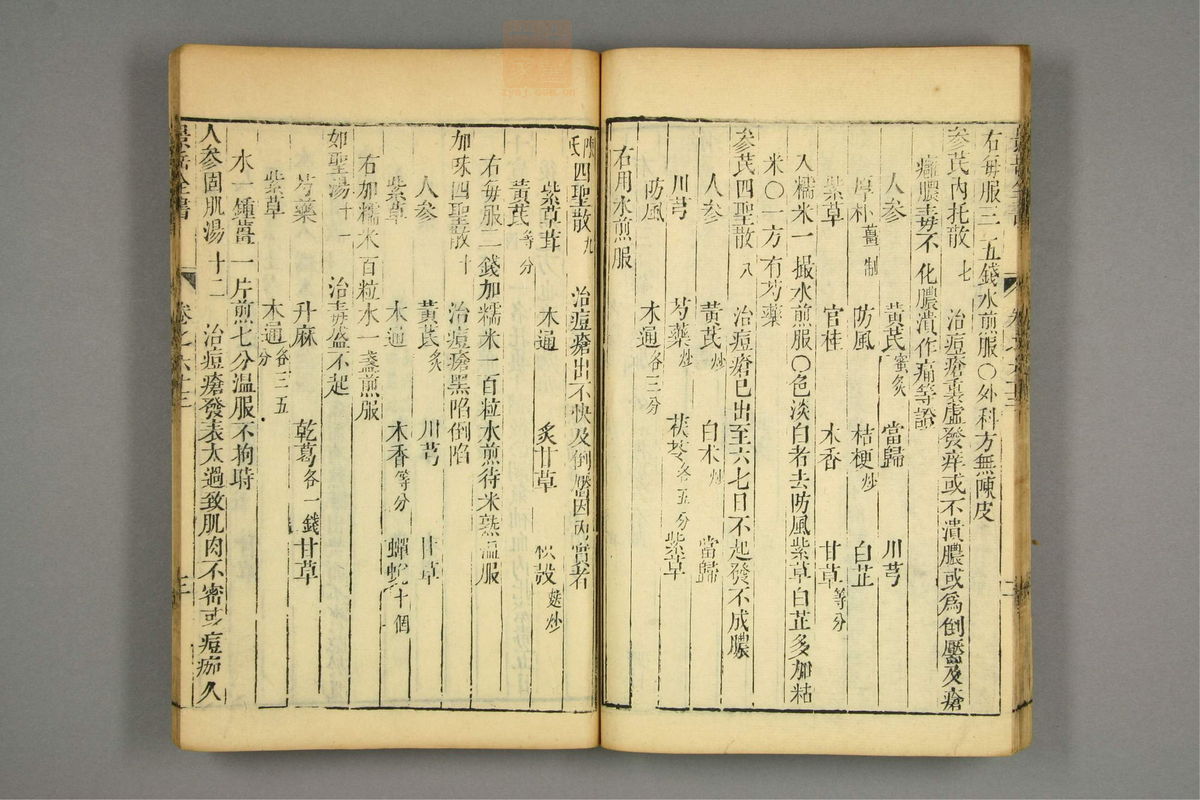 右每服三五錢水煎服〇外科方無陳皮
參芪內托散七 治痘瘡裏虛發痒或不潰膿或爲倒靨及瘡
癰膿毒不化膿潰作痛等證
人參 黃芪蜜炙 當歸 川芎
厚朴薑制 防風 桔梗炒 白芷
紫草 官桂 木香 甘草等分
入糯米一撮水煎服〇色淡白者去防風紫草白芷多加粘
米〇一方有芍藥
參芪四聖散八 治痘瘡已出至六七日不起發不成膿
人參 黃芪炒 白朮炒 當歸
川芎 芍藥炒 茯苓各五分 紫草
防風 木通各三分
右用水煎服
陳氏四聖散九 治痘瘡出不快及倒靨因內實者
紫草茸 木通 炙甘草 枳殼麩炒
黃芪等分
右每服二錢加糯米一百粒水煎待米熟溫服
加味四聖散十 治痘瘡黑陷倒陷
人參 黃芪炙 川芎 甘草
紫草 木通 木香等分 蟬蛻十個
右加糯米百粒水一盞煎服
如聖湯十一 治毒盛不起
芍藥 升麻 乾葛各一錢 甘草
紫草 木通各三五分
水一鍾薑一片煎七分溫服不拘時
人參固肌湯十二 治痘瘡發表太過致肌肉不密或痘痂久
景岳全書 卷之六十三 三